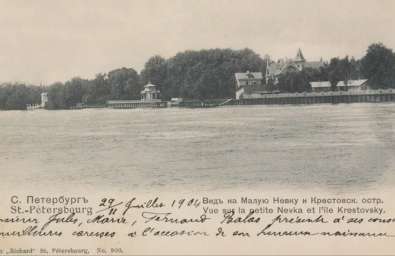 С. Петербургъ 29/11 Juillet 1904 Видъ на Малую Невку и Крестовск. остр.
St.-Pétersbourg Vue sur la petite Nevka et l'île Krestovsky.
Jules, Marie, Fernand Balas présente à ses
caresses à l'occasion de son
"Richard" St. Pétersbourg, No. 800.